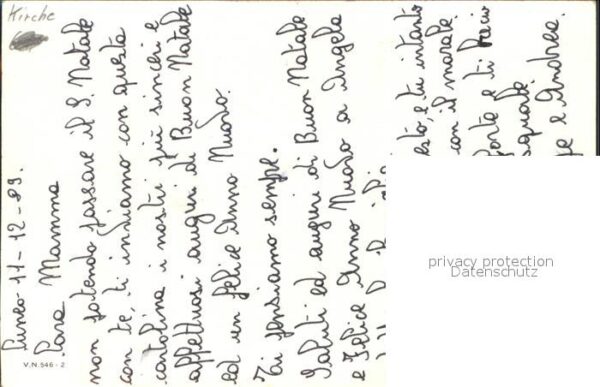 Kirche
Cuneo 11-12-89.
Cara Mamma
non potendo passare il S. Natale
con te, ti inviamo con questa
cartolina i nostri più sinceri e
affettuosi auguri di Buon Natale
ed un felice Anno Nuovo.
Ti pensiamo sempre.
Saluti ed auguri di Buon Natale
e Felice Anno Nuovo a Angela
e tu intanto
con il morale
forte e ti
e Andrea.
V.N. 546 - 2
privacy protection
Datenschutz